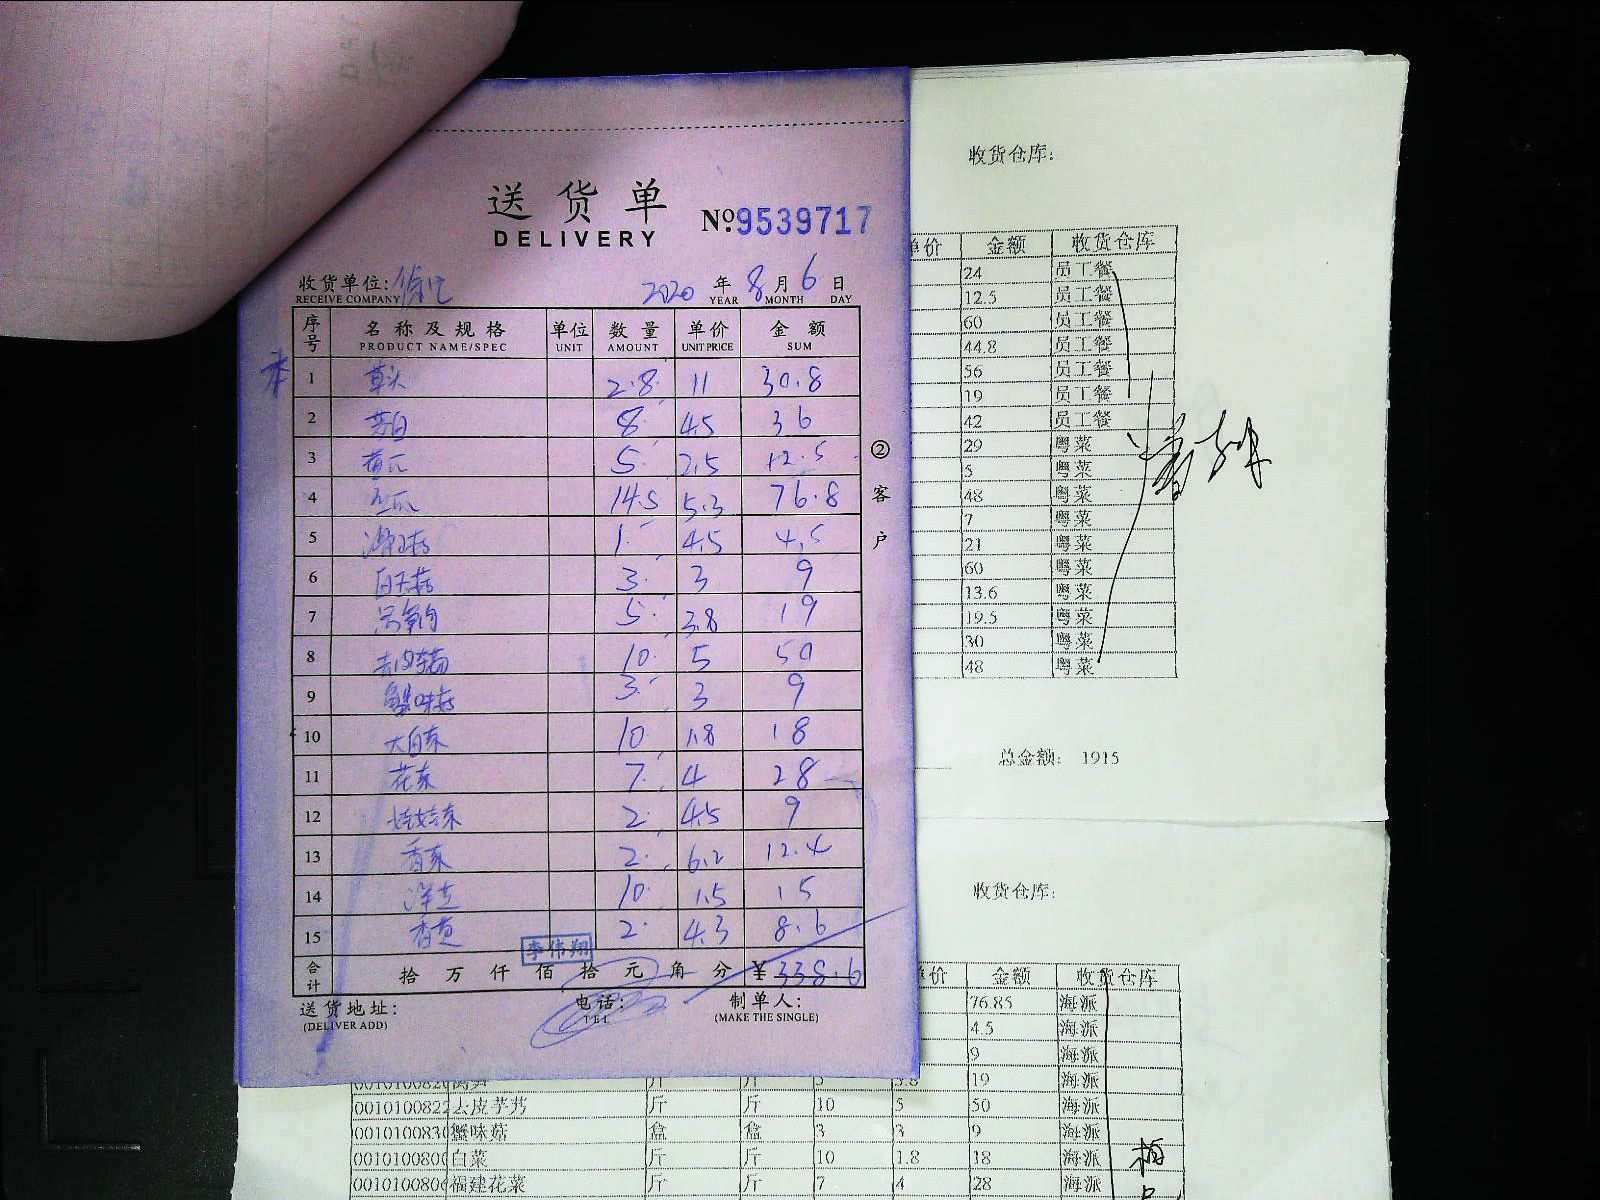 送货单
DELIVERY
No. 9539717
收货单位:
RECEIVE COMPANY
2020 年 8 月 6 日
YEAR MONTH DAY
序号 名称及规格 单位 数量 单价 金额
PRODUCT NAME/SPEC UNIT AMOUNT UNIT PRICE SUM
1 草头 2.8 11 30.8
2 茭白 8 4.5 36
3 黄瓜 5 2.5 12.5
4 14.5 5.3 76.8
5 1 4.5 4.5
6 白玉菇 3 3 9
7 5 3.8 19
8 10 5 50
9 蟹味菇 3 3 9
10 大白菜 10 1.8 18
11 花菜 7 4 28
12 娃娃菜 2 4.5 9
13 香菜 2 6.2 12.4
14 10 1.5 15
15 香葱 2 4.3 8.6
李伟翔
合计 拾 万 仟 佰 拾 元 角 分 ¥338.6
送货地址: 电话: 制单人:
(DELIVER ADD) TEL (MAKE THE SINGLE)
②客户
收货仓库:
单价 金额 收货仓库
24 员工餐
12.5 员工餐
60 员工餐
44.8 员工餐
56 员工餐
19 员工餐
42 员工餐
29 粤菜
5 粤菜
48 粤菜
7 粤菜
21 粤菜
60 粤菜
13.6 粤菜
19.5 粤菜
30 粤菜
48 粤菜
总金额: 1915
收货仓库:
单价 金额 收货仓库
76.85 海派
4.5 海派
9 海派
3.8 19 海派
0010100822 去皮芋艿 斤 斤 10 5 50 海派
001010083 蟹味菇 盒 盒 3 3 9 海派
001010080 白菜 斤 斤 10 1.8 18 海派
001010080 福建花菜 斤 斤 7 4 28 海派